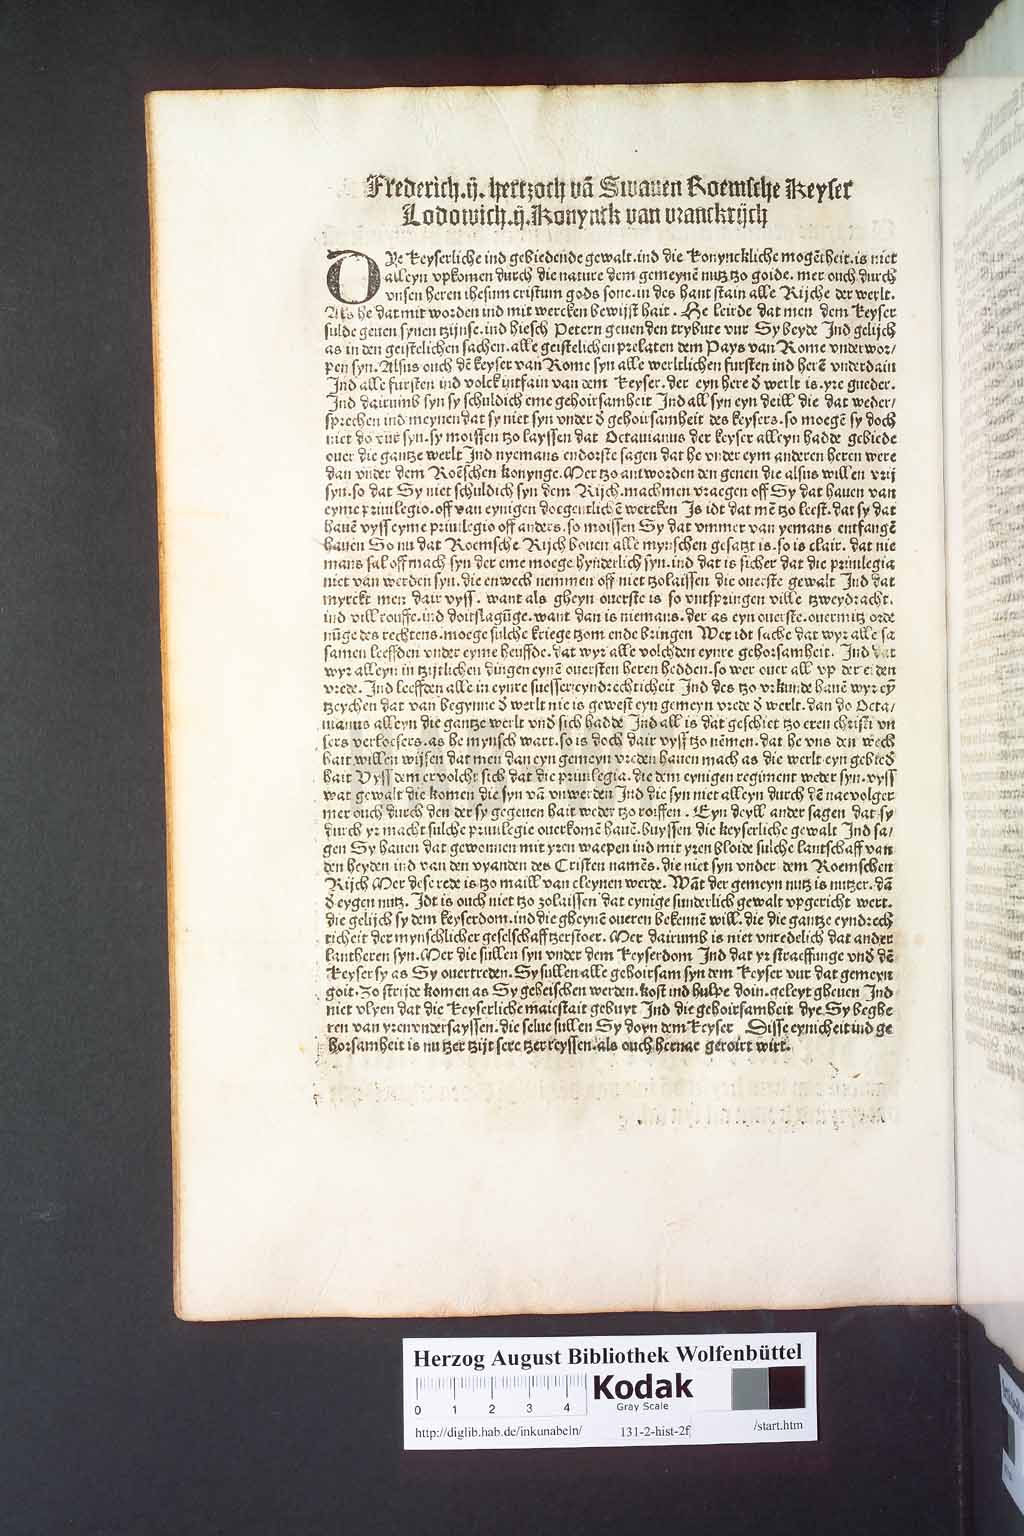 Frederich.ij. hertzoch vā Swauen Roemsche Keyser
Lodowich.ij. Konynck van vranckrijch
DYe keyserliche ind gebiedende gewalt. ind die konynckliche mogēheit. is niet
alleyn vpkomen durch die nature dem gemeynē nutz tzo goide. mer ouch durch
vnsen heren ihesum cristum gods sone. in des hant stain alle Rijche der werlt.
Als he dat mit worden ind mit wercken bewijst hait. He leirde dat men dem keyser
sulde geuen synen tzijnse. ind hiesch Petern geuen den trybute vur Sy beyde Ind gelijch
as in den geistelichen sachen. alle geistelichen prelaten dem Pays van Rome vnderwor/
pen syn. Alsus ouch dē keyser van Rome syn alle werltlichen fursten ind herē vnderdain
Ind alle fursten ind volck intfain van dem keyser. der eyn here d̄ werlt is. yre gueder.
Ind dairumb syn sy schuldich eme gehoirsamheit Ind all syn eyn deill die dat weder/
sprechen ind meynen dat sy niet syn vnder d̄ gehoirsamheit des keysers. so moegē sy doch
niet do vur syn. sy moissen tzo layssen dat Octauianus der keyser alleyn hadde gebiede
ouer die gantze werlt Ind nyemans endorste sagen dat he vnder eym anderen heren were
dan vnder dem Roēschen konynge. Mer tzo antworden den genen die alsus willen vrij
syn. so dat Sy niet schuldich syn dem Rijch. mach men vraegen off Sy dat hauen van
eyme priuilegio. off van eynigen doegentlichē wercken Is idt dat mē tzo leest. dat sy dat
hauē vyss eyme priuilegio off anders. so moissen Sy dat vmmer van yemans entfangē
hauen So nu dat Roemsche Rijch bouen alle mynschen gesatzt is. so is clair. dat nie
mans sal off mach syn der eme moege hynderlich syn. ind dat is sicher dat die priuilegia
niet van werden syn. die enwech nemmen off niet tzolaissen die ouerste gewalt Ind dat
myrckt men dair vyss. want als gheyn ouerste is so vntspringen ville tzweydracht.
ind vill rouffe. ind doitslagūge. want dan is niemans. der as eyn ouerste. ouermitz orde
nūge des rechtens. moege sulche kriege tzom ende bringen Wer idt sache dat wyr alle sa
samen leeffden vnder eyme heuffde. dat wyr alle volchden eynre gehorsamheit. Ind dat
wyr alleyn in tzijtlichen dingen eynē ouersten heren hedden. so wer ouer all vp der erden
vrede. Ind leeffden alle in eynre suesser eyndrechticheit Ind des tzo vrkunde hauē wyr eȳ
tzeychen dat van begynne d̄ werlt nie is gewest eyn gemeyn vrede d̄ werlt. dan do Octa/
uianus alleyn die gantze werlt vnd̄ sich hadde Ind all is dat geschiet tzo eren christi vn
sers verloesers. as he mynsch wart. so is doch dair vyss tzo nēmen. dat he vns den wech
hait willen wijsen dat men dan eyn gemeyn vreden hauen mach as die werlt eyn gebied̄
hait Vyss dem ervolcht sich dat die priuilegia. die dem eynigen regiment weder syn. vyss
wat gewalt die komen die syn vā vnwerden Ind die syn niet alleyn durch dē naevolger
mer ouch durch den der sy gegeuen hait weder tzo roiffen. Eyn deyll ander sagen dat sy
durch yr macht sulche priuilegie ouerkomē hauē. buyssen die keyserliche gewalt Ind sa/
gen Sy hauen dat gewonnen mit yren waepen ind mit yren bloide sulche lantschaff van
den heyden ind van den vyanden des Cristen namēs. die niet syn vnder dem Roemschen
Rijch Mer dese rede is tzo maill van cleynen werde. Wāt der gemeyn nutz is nutzer. dā
d̄ eygen nutz. Idt is ouch niet tzo zolaissen dat eynige sunderlich gewalt vpgericht wert.
die gelijch sy dem keyserdom. ind die gheynē oueren bekennē will. die die gantze eyndrech
ticheit der mynschlicher geselschaff tzerstoer. Mer dairumb is niet vnredelich dat ander
lantheren syn. Mer die sullen syn vnder dem keyserdom Ind dat yr straeffunge vnd̄ dē
keyser sy as Sy ouertreden. Sy sullen alle gehoirsam syn dem keyser vur dat gemeyn
goit. Zo strijde komen as Sy geheischen werden. kost ind hulpe doin. geleyt gheuen Ind
niet vlyen dat die keyserliche maiestait gebuyt Ind die gehoirsamheit dye Sy beghe
ren van yren vndersayssen. die selue sullen Sy doyn dem keyser Disse eynicheit ind ge
horsamheit is nutzer tzijt sere tzerreyssen. als ouch hernae geroirt wirt.
Herzog August Bibliothek Wolfenbüttel
0 1 2 3 4
Kodak
Gray Scale
http://diglib.hab.de/inkunabeln/ 131-2-hist-2f /start.htm